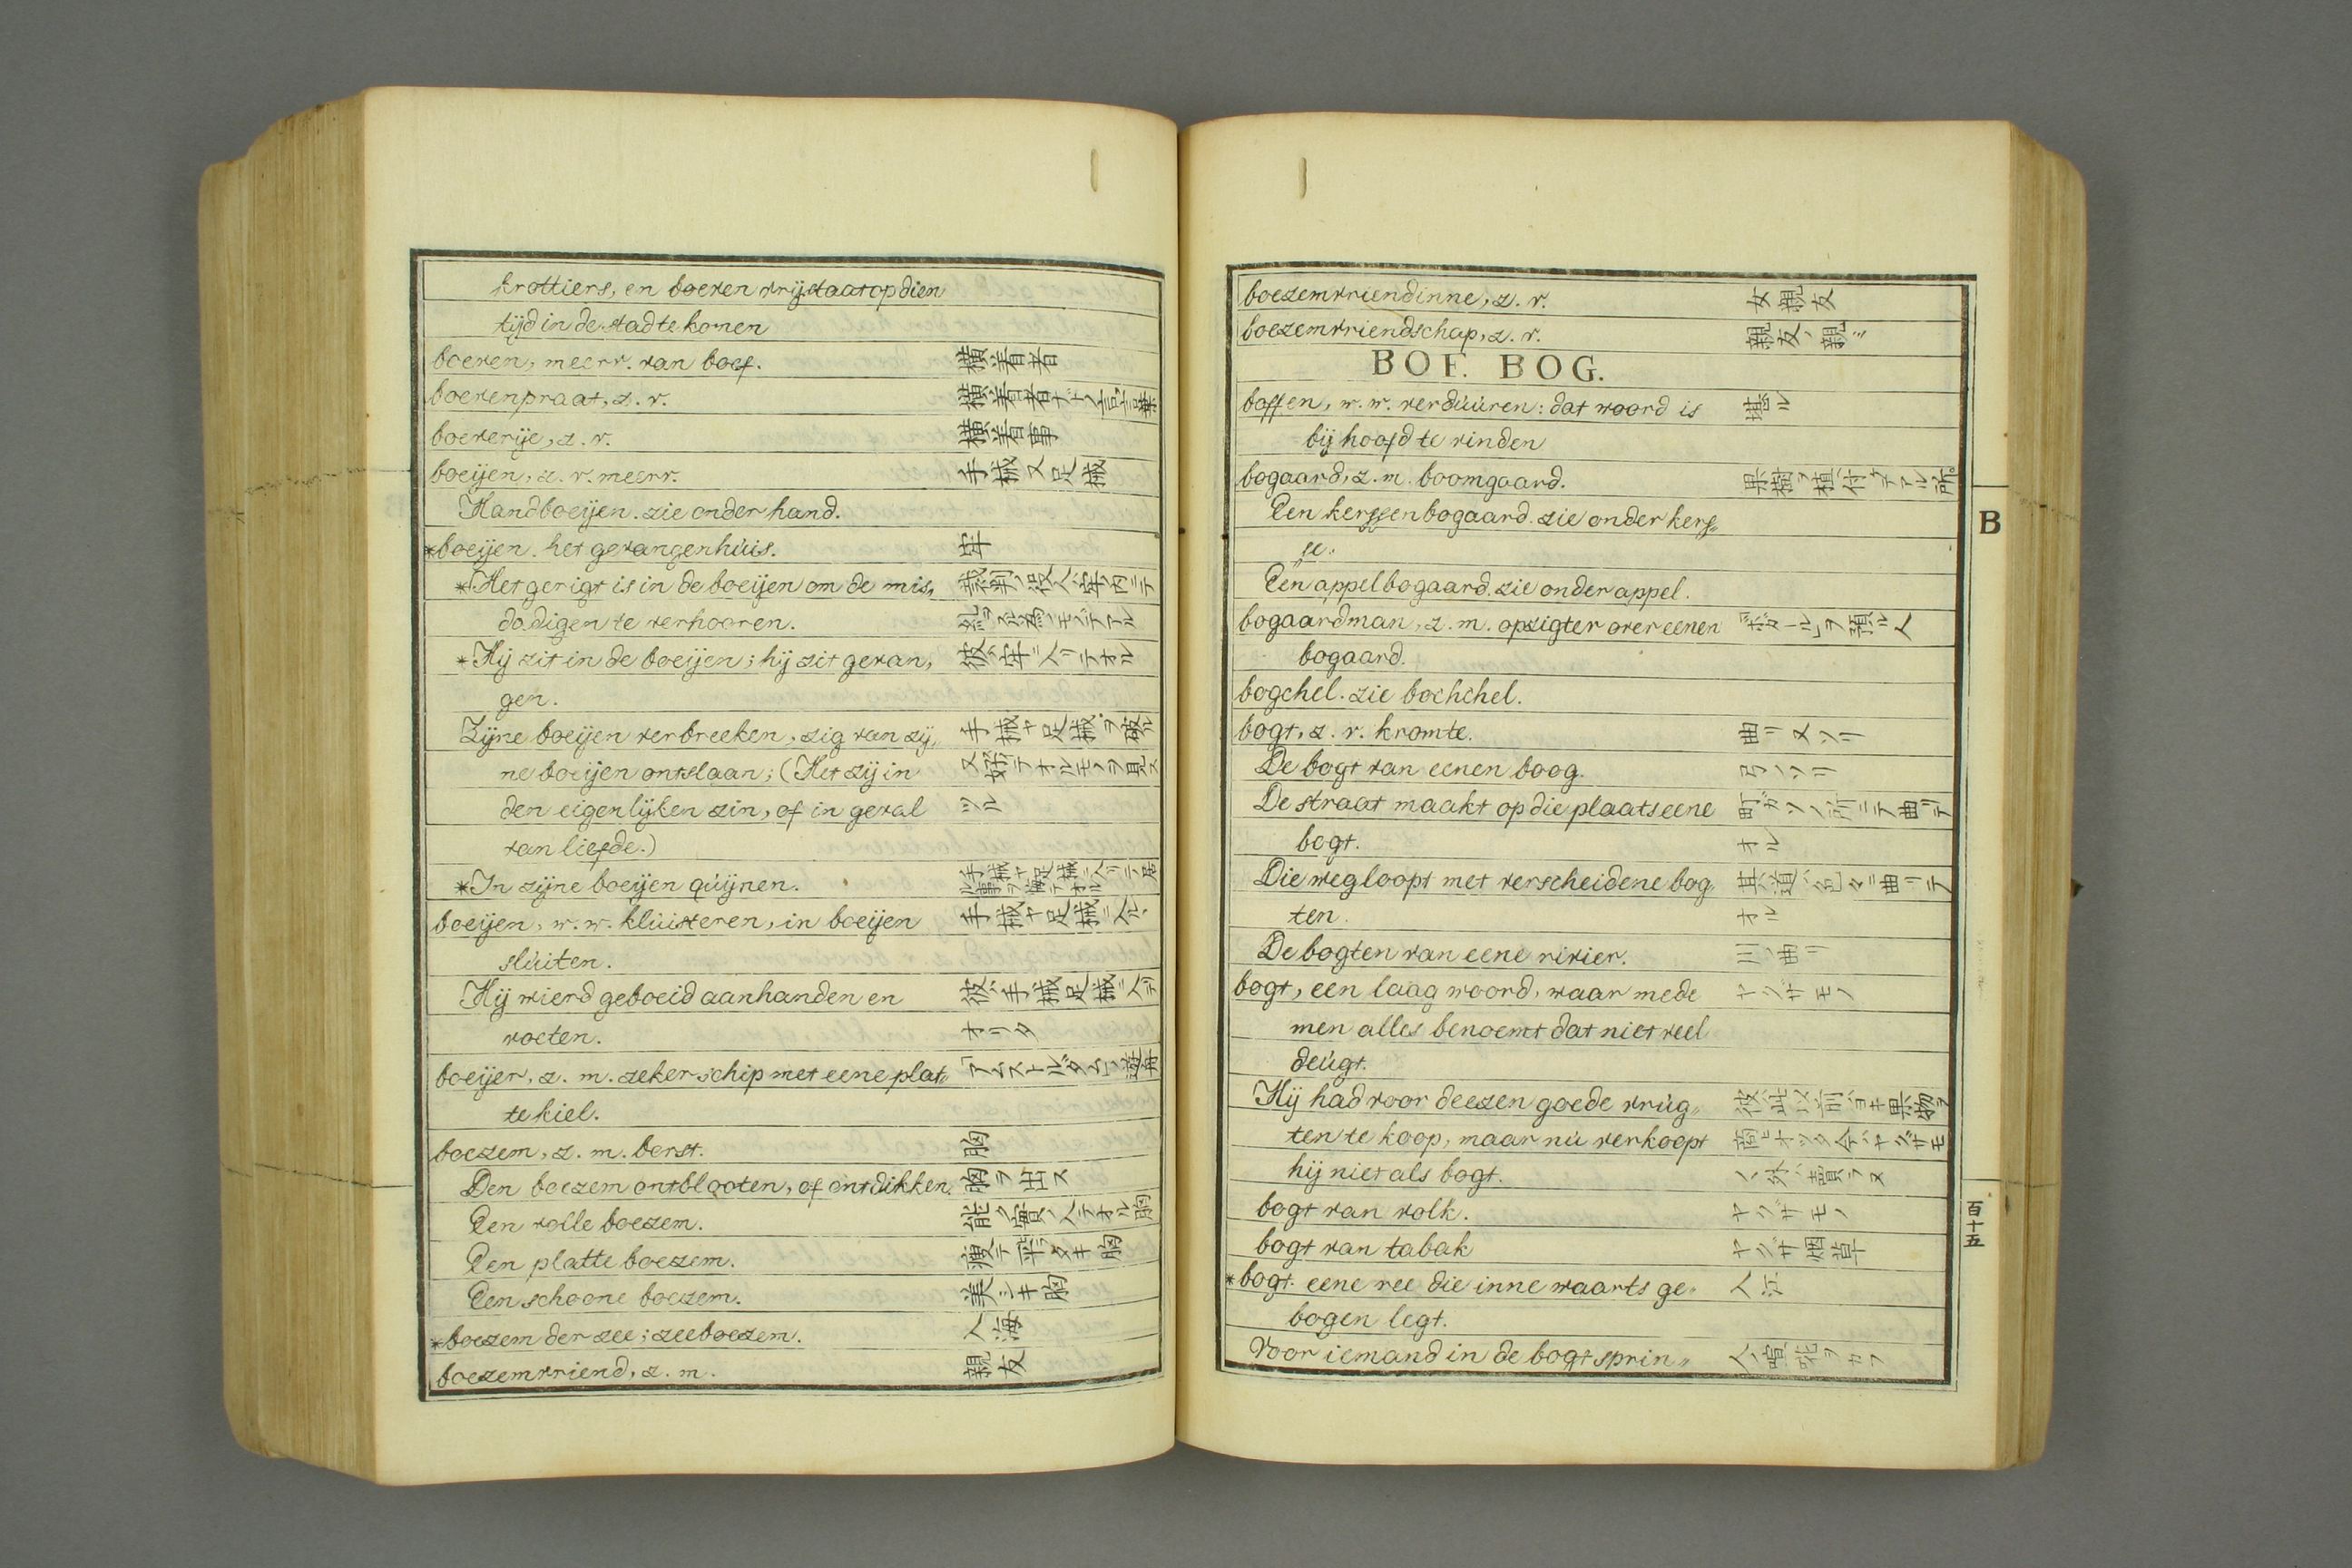 krottiers, en boeven vrij staat op dien
tijd in de stad te komen
boeven, meerv. van boef. 横着者
boevenpraat, z. v. 横着者ナドノ言葉
boeverije, z. v. 横着事
boeijen, z. v. meerv. 手械又足械
Handboeijen. zie onder hand.
*boeijen. het gevangenhúis. 牢
*Het gerigt is in de boeijen om de mis„ 裁判ノ役人ハ牢ノ内ニテ
dadigen te verhooren.
*Hij zit in de boeijen; hij zit gevan„ 彼ハ牢ニ入リテオル
gen.
Zijne boeijen verbreeken, zig van zij„ 手械ヤ足械ヲ破ル
ne boeijen ontslaan; (Het zij in 又好テオルモノヲ見ス
den eigenlijken zin, of in geval ツル
van liefde.)
*In zijne boeijen qúijnen. 手械ヤ足械ニ入リテ居
ル事ヲ悔テオル
boeijen, w. w. klúisteren, in boeijen 手械ヤ足械ニ入ル
slúiten.
Hij wierd geboeid aan handen en 彼ハ手械足械ニ入テ
voeten. オリタ
boeijer, z. m. zeker schip met eene plat„ アムストルダムノ遊舟
te kiel.
boezem, z. m. borst. 胸
Den boezem ontblooten, of ontdikken. 胸ヲ出ス
Een volle boezem. 能ク實ノ入テオル胸
Een platte boezem. 痩テ平タキ胸
Een schoone boezem. 美シキ胸
*boezem der zee; zeeboezem. 入海
boezemvriend, z. m. 親友
boezemvriendinne, z. v. 女親友
boezemvriendschap, z. v. 親友ノ親ミ
BOF. BOG.
boffen, w. w. verdúúren: dat woord is 堪ル
bij hoofd te vinden
bogaard, z. m. boomgaard. 果樹ヲ植付ケテアル所
Een kerssenbogaard. zie onder kers„
se.
Een appelbogaard. zie onder appel.
bogaardman, z. m. opzigter over eenen 「ボガールド」ヲ預ル人
bogaard.
bogchel. zie bochchel.
bogt, z. v. kromte. 曲リ又ソリ
De bogt van eenen boog. 弓ノソリ
De straat maakt op die plaats eene 町ガソノ所ニテ曲リテ
bogt. オル
Die weg loopt met verscheidene bog„ 其道ハ色々ニ曲リテ
ten. オル
De bogten van eene rivier. 川ノ曲リ
bogt, een laag woord, waar mede ヤクザモノ
men alles benoemt dat niet veel
deúgt.
Hij had voor deezen goede vrúg„ 彼ハ此以前ハヨキ果物ヲ
ten te koop, maar nú verkoopt 商ヒオツタ今ハヤクザモ
hij niet als bogt. ノ外ハ賣ラヌ
bogt van volk. ヤクザモノ
bogt van tabak ヤクザ烟草
*bogt. eene ree die inne waarts ge„ 入江
bogen legt.
Voor iemand in de bogt sprin„ 人ノ喧𠵅ヲカフ
B
百十五